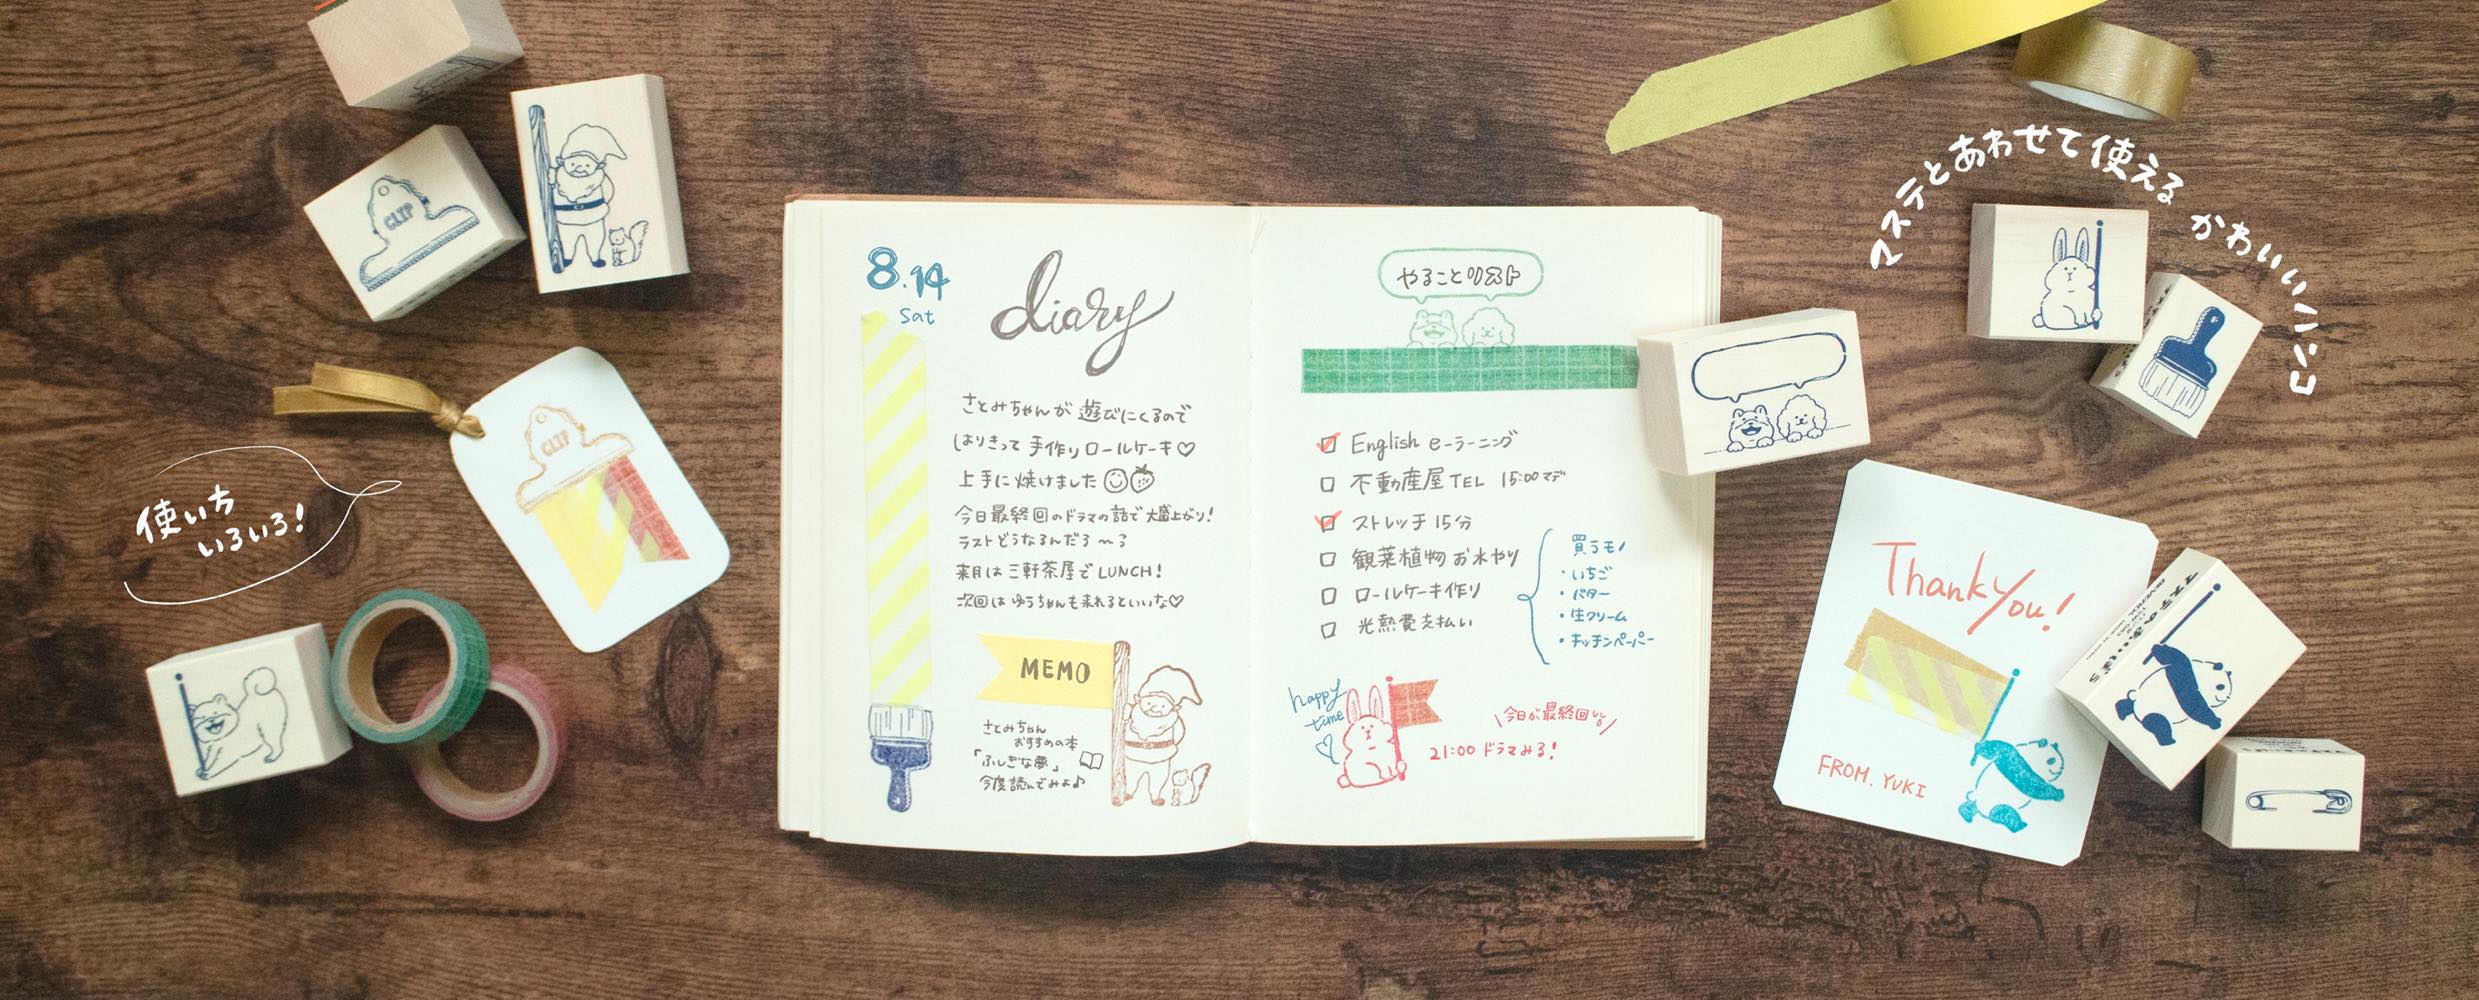 マステとあわせて使える かわいいハンコ
使い方
いろいろ!
CLIP
CLIP
8.14
Sat
diary
さとみちゃんが遊びにくるので
はりきって手作りロールケーキ♡
上手に焼けました
今日最終回のドラマの話で大盛上がり!
ラストどうなるんだろ〜る
来月は三軒茶屋でLUNCH!
次回はゆうちゃんも来れるといいな♡
MEMO
さとみちゃん
おすすめの本
「ふしぎな夢」
今度読んでみよ♪
やることリスト
English e-ラーニング
不動産屋TEL 15:00マデ
ストレッチ15分
観葉植物お水やり
ロールケーキ作り
光熱費支払い
買うモノ
・いちご
・バター
・生クリーム
・キッチンペーパー
happy
time
♡
\今日が最終回/
21:00 ドラマみる!
Thank you!
FROM. YUKI
ステのあいぼう